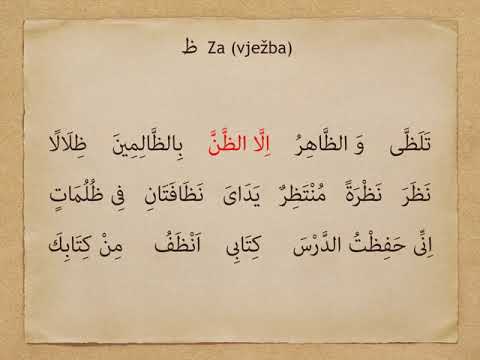 ظ Za (vježba)
تَلَظَّى وَ الظَّاهِرُ اِلَّا الظَّنَّ بِالظَّالِمِينَ ظِلَالًا
نَظَرَ نَظْرَةً مُنْتَظِرٌ يَدَاىَ نَظَافَتَانِ فِى ظُلُمَاتٍ
اِنِّى حَفِظْتُ الدَّرْسَ كِتَابِى اَنْظَفُ مِنْ كِتَابِكَ